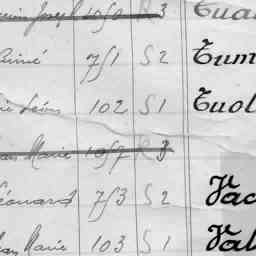 Joseph 1050 R 3 Tua
Aimé 751 S 2 Tum
Léon 102 S 1 Tuol
Marie 1057 R 3
Léonard 753 S 2 Vac
Jean Marie 103 S 1 Val